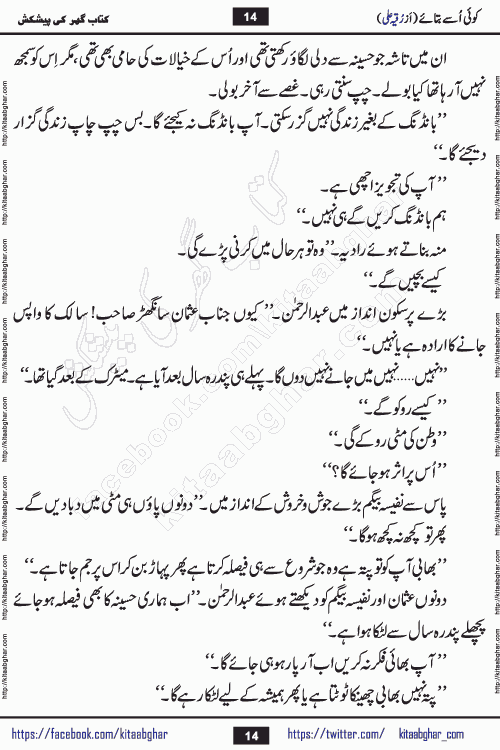 کوئی اُسے بتائے (از رُقیہ علی) 14 کتاب گھر کی پیشکش
ان میں تاشہ جو حسینہ سے دلی لگاؤ رکھتی تھی اور اُس کے خیالات کی حامی بھی تھی، مگر اِس کو سمجھ
نہیں آ رہا تھا کیا بولے۔ چپ سنتی رہی۔ غصے سے آخر بولی۔
’’بانڈنگ کے بغیر زندگی نہیں گزر سکتی۔ آپ بانڈنگ نہ کیجئے گا۔ بس چپ چاپ زندگی گزار
دیجئے گا۔‘‘
’’آپ کی تجویز اچھی ہے۔
ہم بانڈنگ کریں گے ہی نہیں۔‘‘
منہ بناتے ہوئے رادیہ۔ ’’وہ تو ہر حال میں کرنی پڑے گی۔
کیسے بچیں گے۔‘‘
بڑے پرسکون انداز میں عبدالرحمٰن۔ ’’کیوں جناب عثمان سانگھڑ صاحب! سالک کا واپس
جانے کا ارادہ ہے یا نہیں۔‘‘
’’نہیں......نہیں میں جانے نہیں دوں گا۔ پہلے ہی پندرہ سال بعد آیا ہے۔ میٹرک کے بعد گیا تھا۔‘‘
’’کیسے روکو گے۔‘‘
’’وطن کی مٹی روکے گی۔‘‘
’’اُس پر اثر ہو جائے گا؟‘‘
پاس سے نفیسہ بیگم بڑے جوش و خروش کے انداز میں۔ ’’دونوں پاؤں ہی مٹی میں دبا دیں گے۔
پھر تو کچھ نہ کچھ ہوگا۔‘‘
’’بھابی آپ کو تو پتہ ہے وہ جو شروع سے ہی فیصلہ کرتا ہے پھر پہاڑ بن کر اس پر جم جاتا ہے۔‘‘
دونوں عثمان اور نفیسہ بیگم کو دیکھتے ہوئے عبدالرحمٰن۔ ’’اب ہماری حسینہ کا بھی فیصلہ ہو جائے
پچھلے پندرہ سال سے لٹکا ہوا ہے۔‘‘
’’آپ بھائی فکر نہ کریں اب آر پار ہو ہی جائے گا۔‘‘
’’پتہ نہیں بھابی چھینکا ٹوٹتا ہے یا پھر ہمیشہ کے لیے لٹکا رہے گا۔‘‘
https://facebook.com/kitaabghar 14 https://twitter.com/ kitaabghar_com
http://kitaabghar.com http://kitaabghar.com http://kitaabghar.com http://kitaabghar.com http://kitaabghar.com http://kitaabghar.com http://kitaabghar.com http://kitaabghar.com
کتاب گھر کی پیشکش
facebook.com/kitaabghar
kitaabghar.com